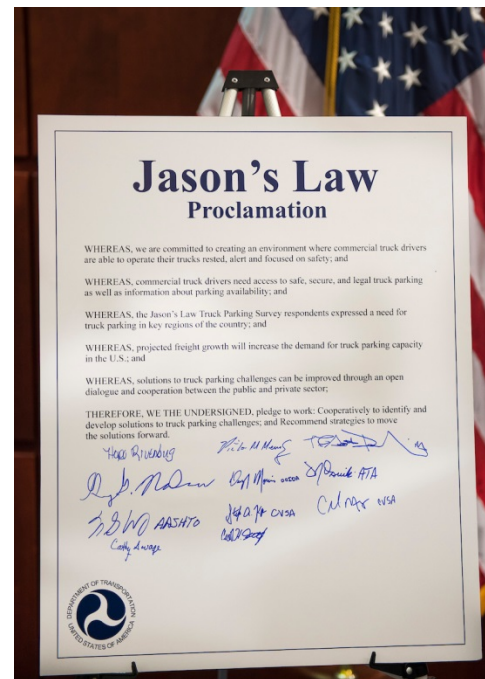 Jason's Law
Proclamation
WHEREAS, we are committed to creating an environment where commercial truck drivers
are able to operate their trucks rested, alert and focused on safety; and
WHEREAS, commercial truck drivers need access to safe, secure, and legal truck parking
as well as information about parking availability; and
WHEREAS, the Jason's Law Truck Parking Survey respondents expressed a need for
truck parking in key regions of the country; and
WHEREAS, projected freight growth will increase the demand for truck parking capacity
in the U.S.; and
WHEREAS, solutions to truck parking challenges can be improved through an open
dialogue and cooperation between the public and private sector;
THEREFORE, WE THE UNDERSIGNED, pledge to work: Cooperatively to identify and
develop solutions to truck parking challenges; and Recommend strategies to move
the solutions forward.
Hope Rivenburg
ATA
AASHTO CVSA CVSA
Cathy
DEPARTMENT OF TRANSPORTATION
UNITED STATES OF AMERICA